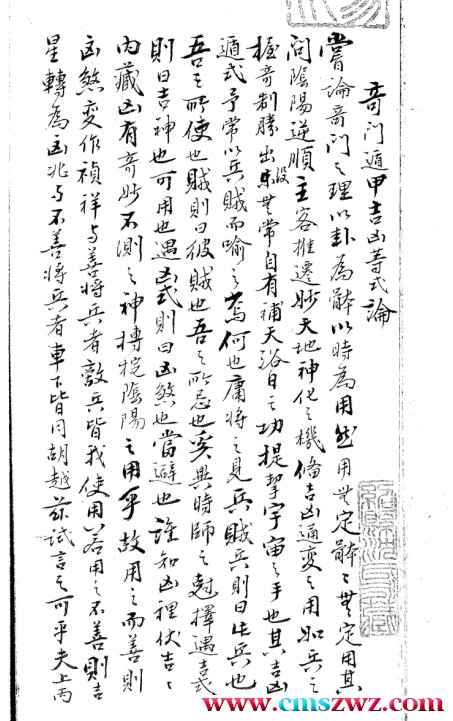 奇门遁甲吉凶䓁式論
嘗論奇门之理以卦為骵以時為用然用無定骵〻無定用其
间陰陽逆順主客推遷妙天地神化之機備吉凶通变之用如兵之
握奇制勝出没無常自有補天浴日之功提挈宇宙之手也其吉凶
遁式予常以兵賊而喻之焉何也庸將之見兵賊兵則曰此兵也
吾之所使也賊則曰彼賊也吾之所忌也奚異時師之尅擇遇吉式
則曰吉神也可用也遇凶式則曰凶煞也當避也誰知凶裡伏吉〻
内藏凶有奇妙不測之神陰陽之用乎故用之而善則
凶煞变作禎祥与善將兵者敵兵皆我使用若用之不善則吉
星轉為凶兆与不善將兵者車下皆同胡越兹试言之可乎夫上丙
www.cmszwz.com